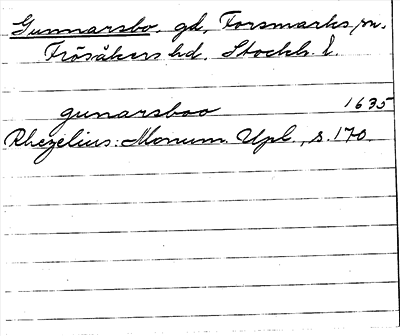 Gunnarsbo, gd, Forsmarks sn.
Frösåkers hd. Stockh. l.
gunarsboo 1635
Rhezelius: Monum. Upl., s. 170.